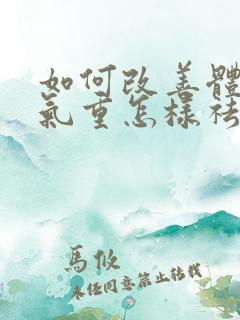 如何改善體
氣重怎樣祛
馬攸
未经同意禁止转载